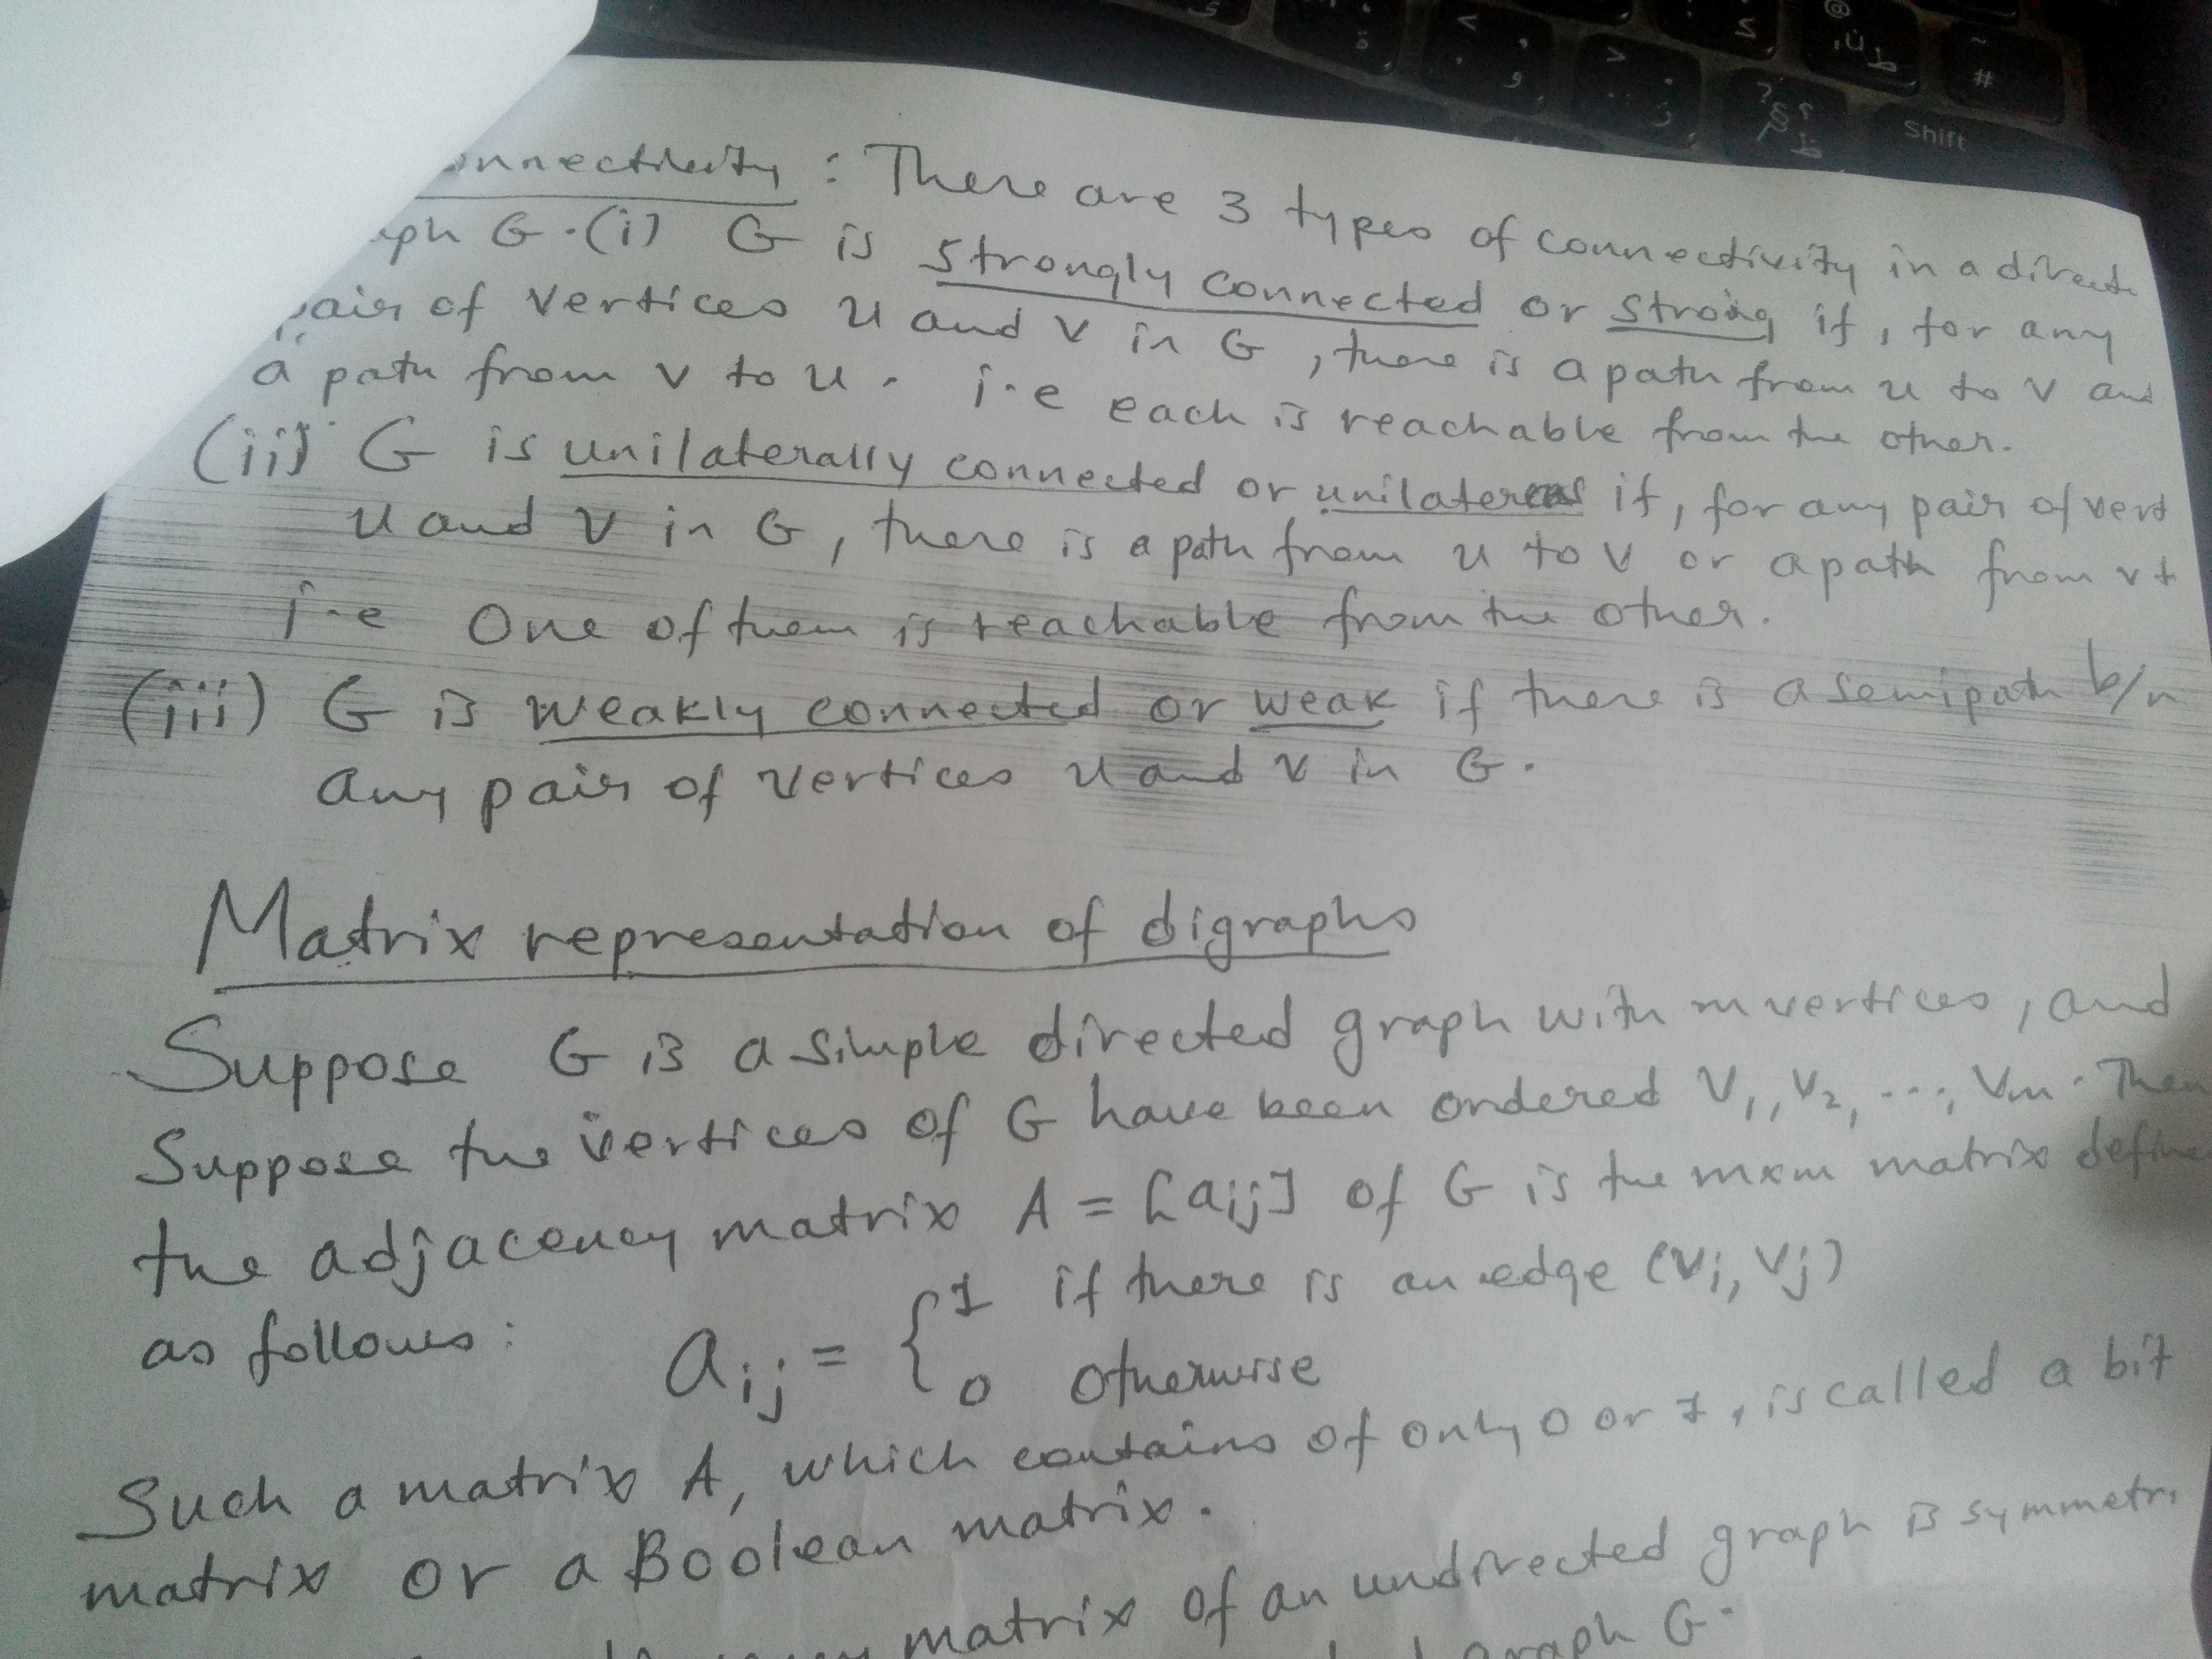 onnectivity : There are 3 types of connectivity in a directe
aph G. (i) G is strongly connected or strong if, for any
pair of vertices u and v in G, there is a path from u to v and
a path from v to u. i.e each is reachable from the other.
(ii) G is unilaterally connected or unilateral if, for any pair of vert
u and v in G, there is a path from u to v or a path from v t
i.e One of them is reachable from the other.
(iii) G is weakly connected or weak if there is a semipath b/n
any pair of vertices u and v in G.
Matrix representation of digraphs
Suppose G is a simple directed graph with m vertices, and
Suppose the vertices of G have been ordered V1, V2, ..., Vm. Then
the adjacency matrix A = [aij] of G is the mxm matrix define
as follows: aij = { 1 if there is an edge (vi, vj)
0 otherwise
Such a matrix A, which contains of only 0 or 1, is called a bit
matrix or a Boolean matrix.
matrix of an undirected graph is symmetri
graph G.
Shift
#
~
@
<
>
?